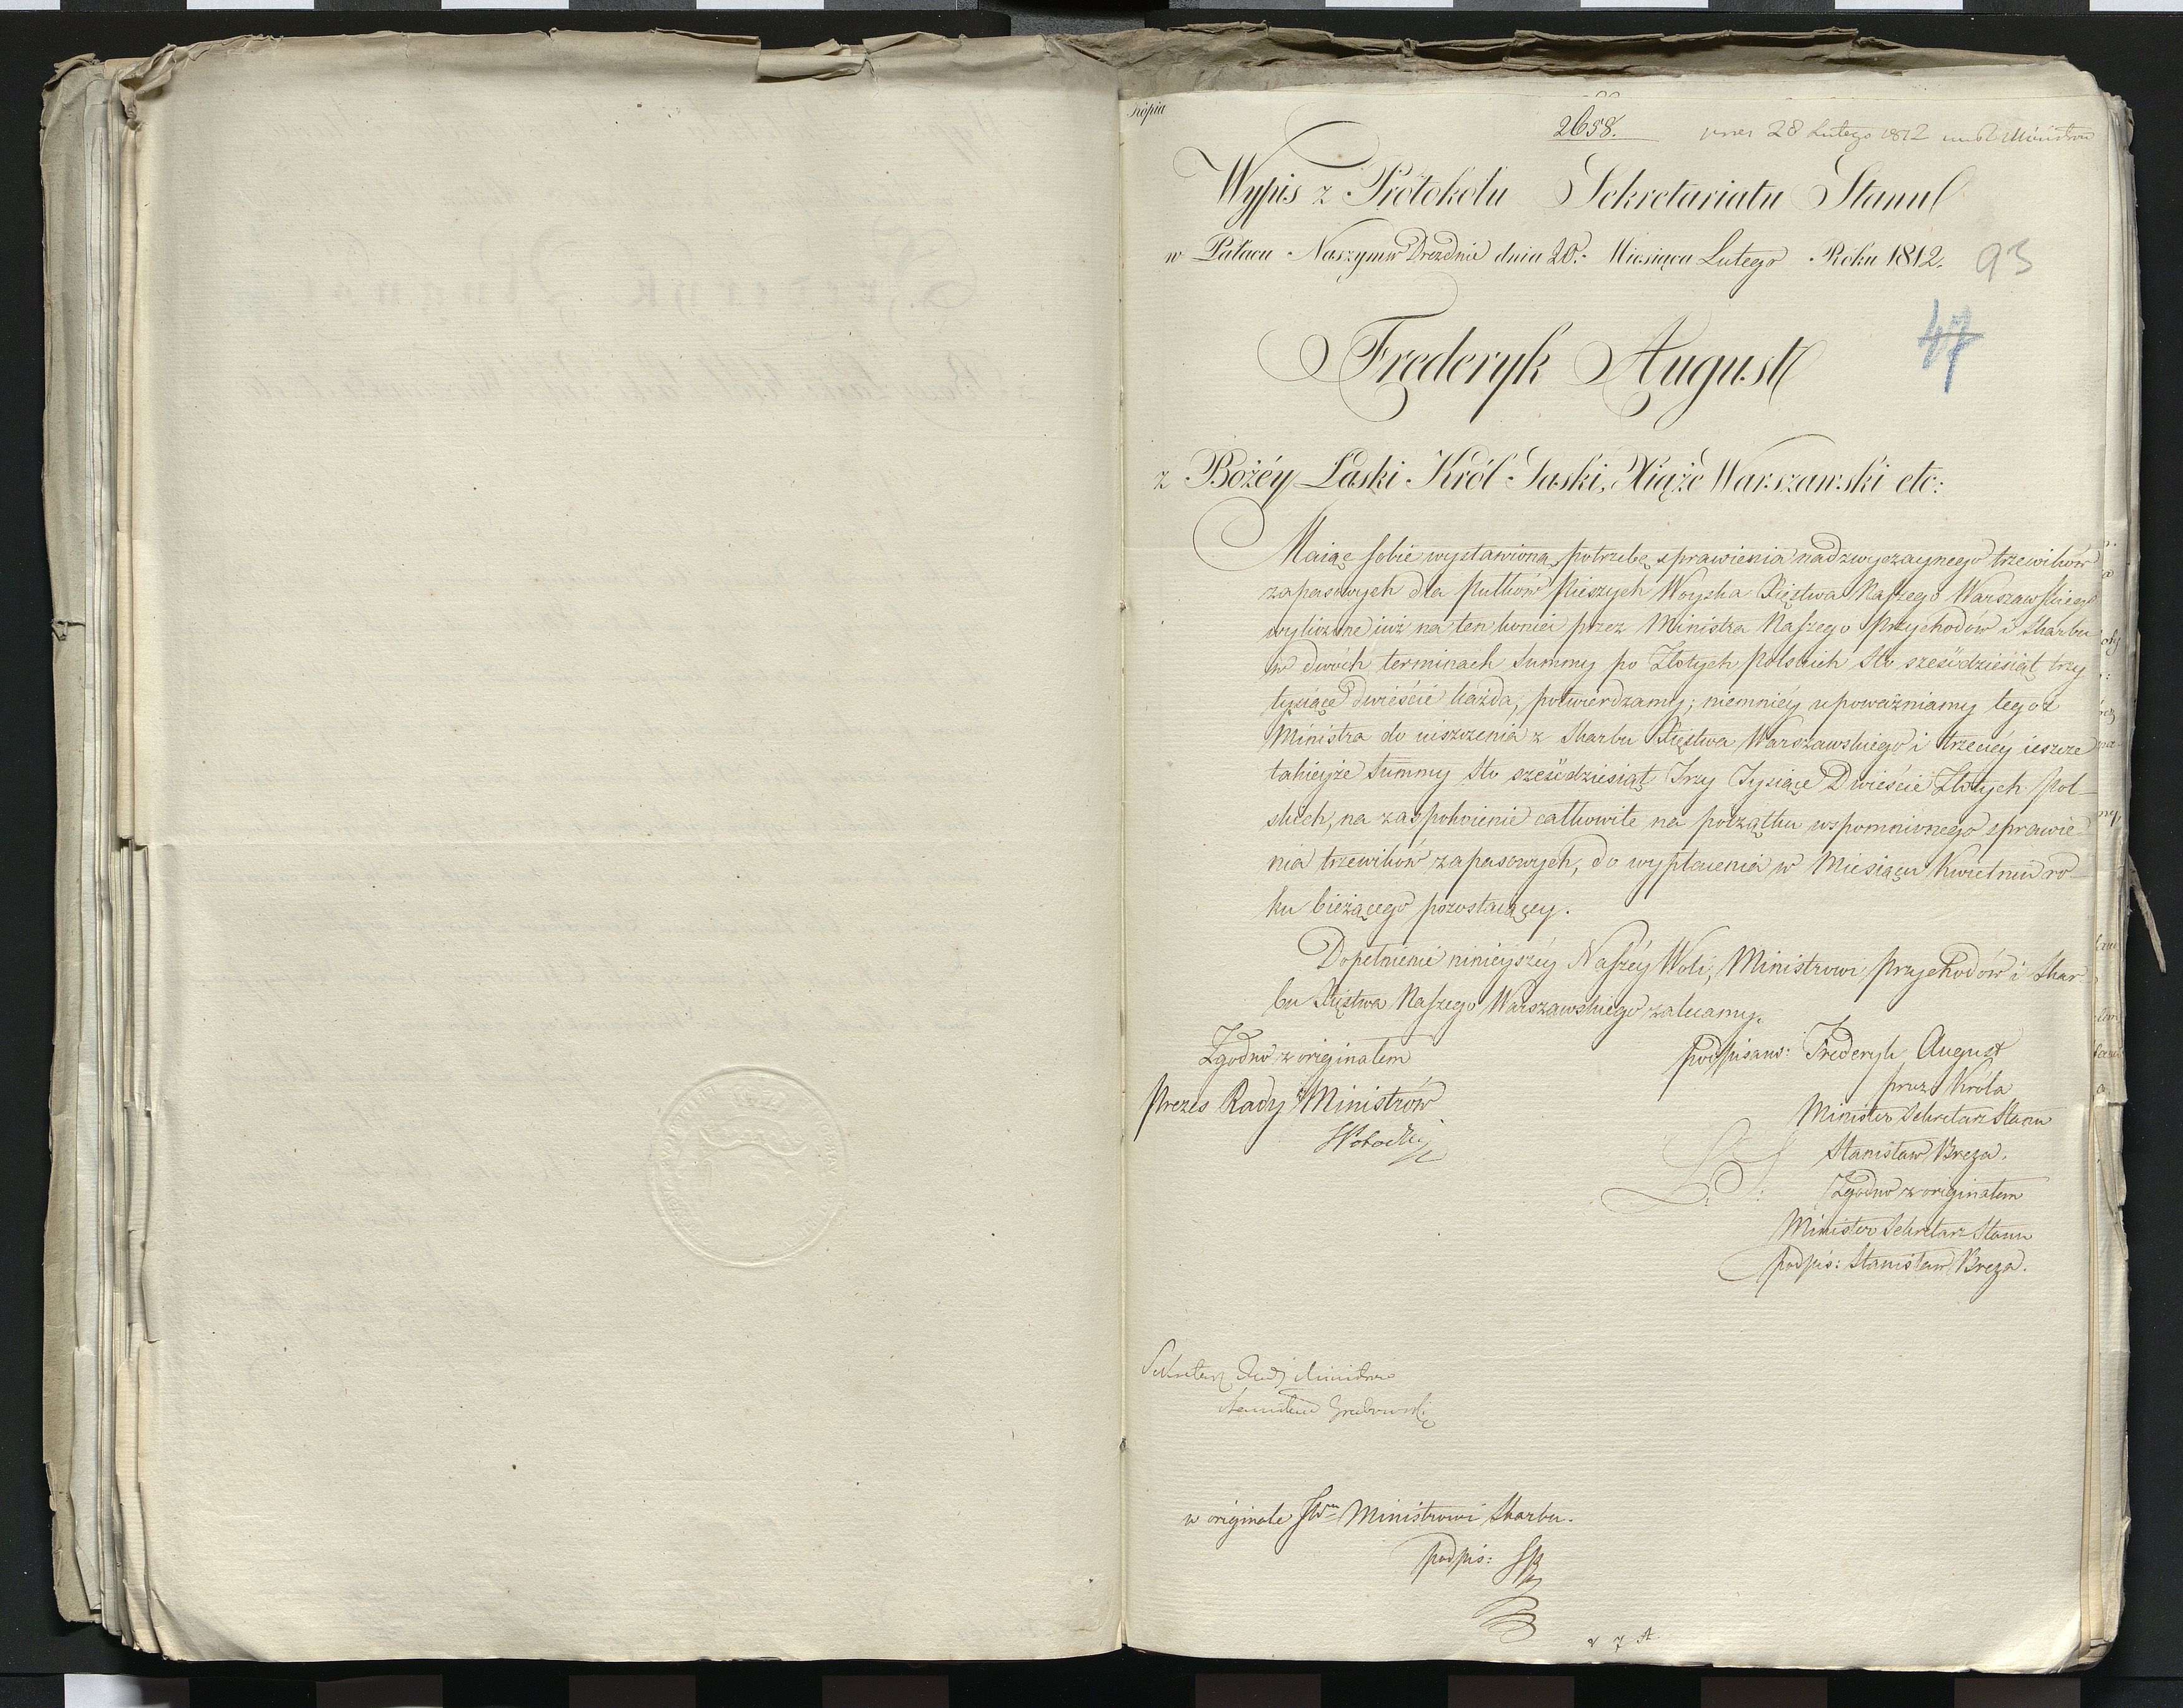 Kopia
2658.
28 Lutego 1812
Wypis z Protokółu Sekretariatu Stanu
w Pałacu Naszym w Dreznie dnia 20. Miesiąca Lutego Roku 1812.
93
47
Frederyk August
z Bożéy Łaski Król Saski, Xiąże Warszawski etc:
Maiąc sobie wystawioną potrzebę sprawienia nadzwyczaynego trzewików
zapasowych dla Pułków Pieszych Woyska Xięstwa Naszego Warszawskiego
wyliczone iuż na ten koniec przez Ministra Naszego Przychodów i Skarbu
w dwóch terminach Summy po Złotych Polskich Sto sześćdziesiąt trzy
tysiące dwieście każda, potwierdzamy; niemniéy upoważniamy tegoż
Ministra do uiszczenia z Skarbu Xięstwa Warszawskiego i trzeciéy ieszcze
takieyże Summy Sto sześćdziesiąt Trzy Tysiące Dwieście Złotych Pol-
skich, na zaspokoienie całkowite na początku wspomnionego sprawie-
nia trzewików zapasowych, do wypłacenia w Miesiącu Kwietniu ro-
ku bieżącego pozostaiącey.
Dopełnienie ninieyszéy Naszéy Woli, Ministrowi Przychodów i Skar-
bu Xięstwa Naszego Warszawskiego zalecamy.
Zgodno z originałem
Prezes Rady Ministrów
podpisano: Frederyk August
przez Króla
Minister Sekretarz Stanu
Stanisław Breza.
L. S.
Zgodno z originałem
Minister Sekretarz Stanu
podpis: Stanisław Breza.
Sekretarz Rady Ministrów
Stanisław Grabowski
w originale JWmu Ministrowi Skarbu.
podpis: